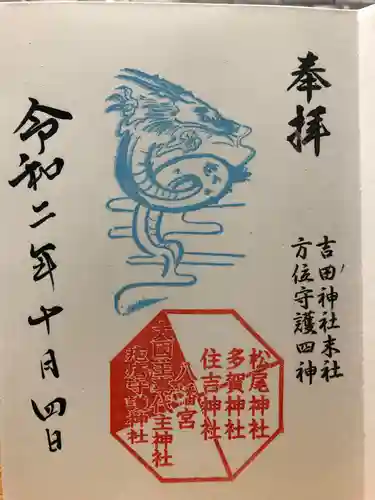 奉拝
吉田神社末社
方位守護四神
松尾神社
多賀神社
住吉神社
八幡宮
主神社
神社
令和二年十月四日